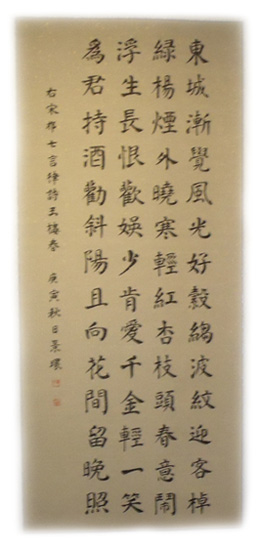 東城漸覺風光好縠縐波紋迎客棹
綠楊煙外曉寒輕紅杏枝頭春意鬧
浮生長恨歡娛少肯愛千金輕一笑
為君持酒勸斜陽且向花間留晚照
右宋祁七言律詩玉樓春 庚寅秋日景環